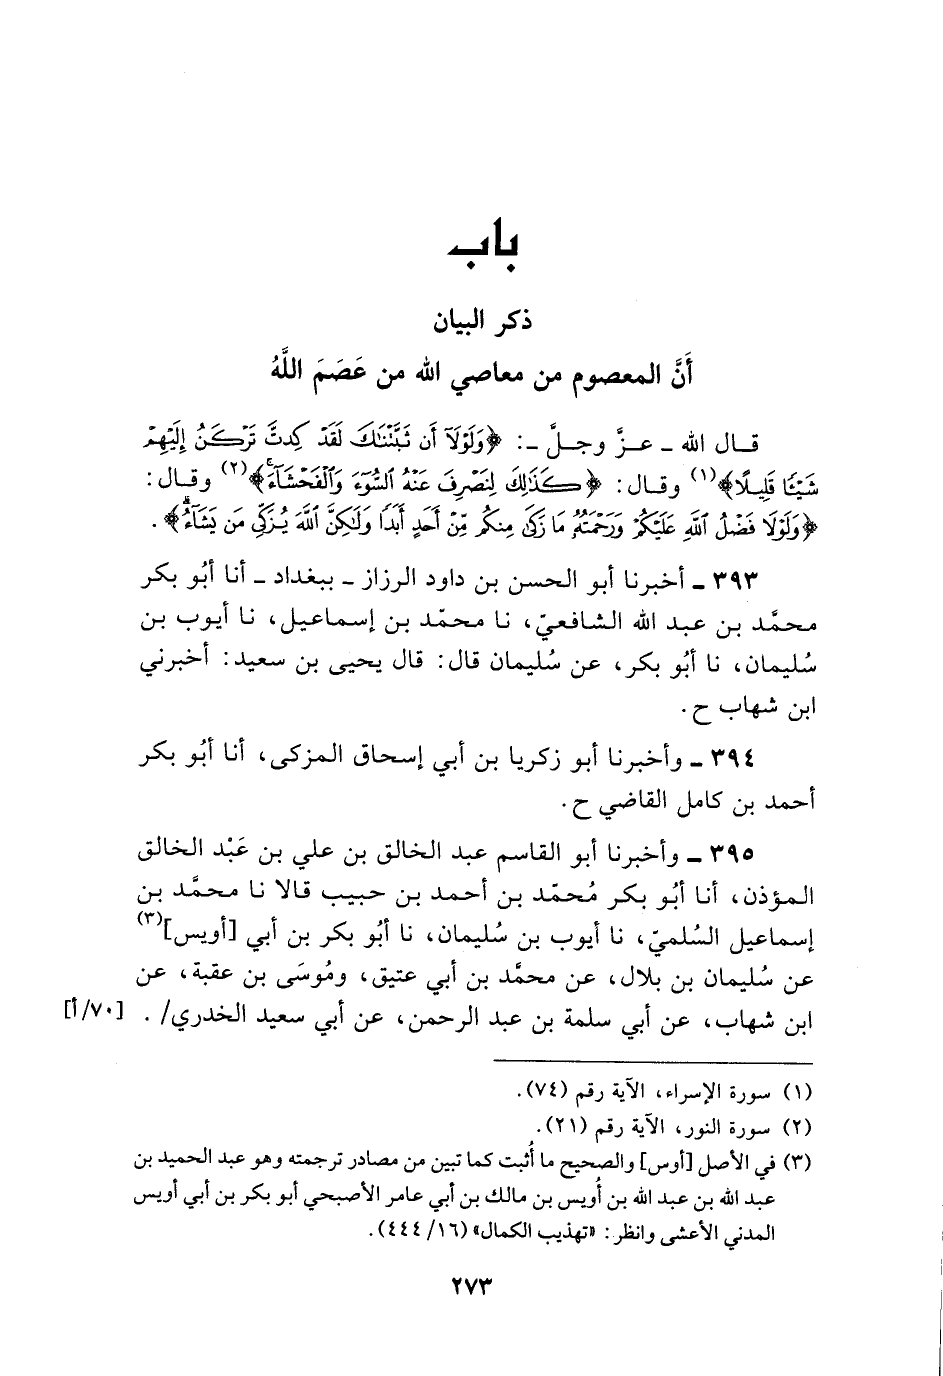 باب
ذكر البيان
أَنَّ المعصوم من معاصي الله من عَصَمَ اللَّهُ
قال الله ـ عزَّ وجلَّ ـ: ﴿وَلَوْلَآ أَن ثَبَّتْنَٰكَ لَقَدْ كِدتَّ تَرْكَنُ إِلَيْهِمْ
شَيْـًٔا قَلِيلًا﴾(١) وقال: ﴿كَذَٰلِكَ لِنَصْرِفَ عَنْهُ ٱلسُّوٓءَ وَٱلْفَحْشَآءَ ۚ﴾(٢) وقال:
﴿وَلَوْلَا فَضْلُ ٱللَّهِ عَلَيْكُمْ وَرَحْمَتُهُۥ مَا زَكَىٰ مِنكُم مِّنْ أَحَدٍ أَبَدًا وَلَٰكِنَّ ٱللَّهَ يُزَكِّى مَن يَشَآءُ ۗ﴾.
٣٩٣ ـ أخبرنا أبو الحسن بن داود الرزاز ـ ببغداد ـ أنا أبُو بكر
محمَّد بن عبد الله الشافعيّ، نا محمّد بن إسماعيل، نا أيوب بن
سُليمان، نا أبُو بكر، عن سُليمان قال: قال يحيى بن سعيد: أخبرني
ابن شهاب ح.
٣٩٤ ـ وأخبرنا أبو زكريا بن أبي إسحاق المزكى، أنا أبُو بكر
أحمد بن كامل القاضي ح.
٣٩٥ ـ وأخبرنا أبو القاسم عبد الخالق بن علي بن عَبْد الخالق
المؤذن، أنا أبُو بكر مُحمّد بن أحمد بن حبيب قالا نا محمَّد بن
إسماعيل السُلميّ، نا أيوب بن سُليمان، نا أبُو بكر بن أبي [أويس](٣)
عن سُليمان بن بلال، عن محمَّد بن أبي عتيق، ومُوسَى بن عقبة، عن
ابن شهاب، عن أبي سلمة بن عبد الرحمن، عن أبي سعيد الخدري/ . [٧٠/أ]
(١) سورة الإسراء، الآية رقم (٧٤).
(٢) سورة النور، الآية رقم (٢١).
(٣) في الأصل [أوس] والصحيح ما أُثبت كما تبين من مصادر ترجمته وهو عبد الحميد بن
عبد الله بن عبد الله بن أُويس بن مالك بن أبي عامر الأصبحي أبو بكر بن أبي أويس
المدني الأعشى وانظر: «تهذيب الكمال» (١٦/ ٤٤٤).
٢٧٣